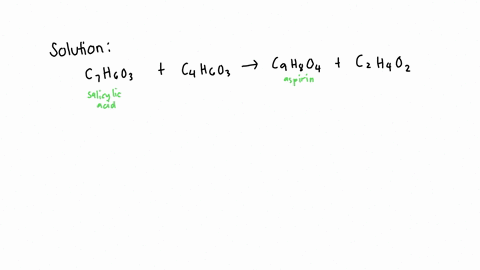 Solution:
C₇H₆O₃ + C₄H₆O₃ → C₉H₈O₄ + C₂H₄O₂
salicylic aspirin
acid